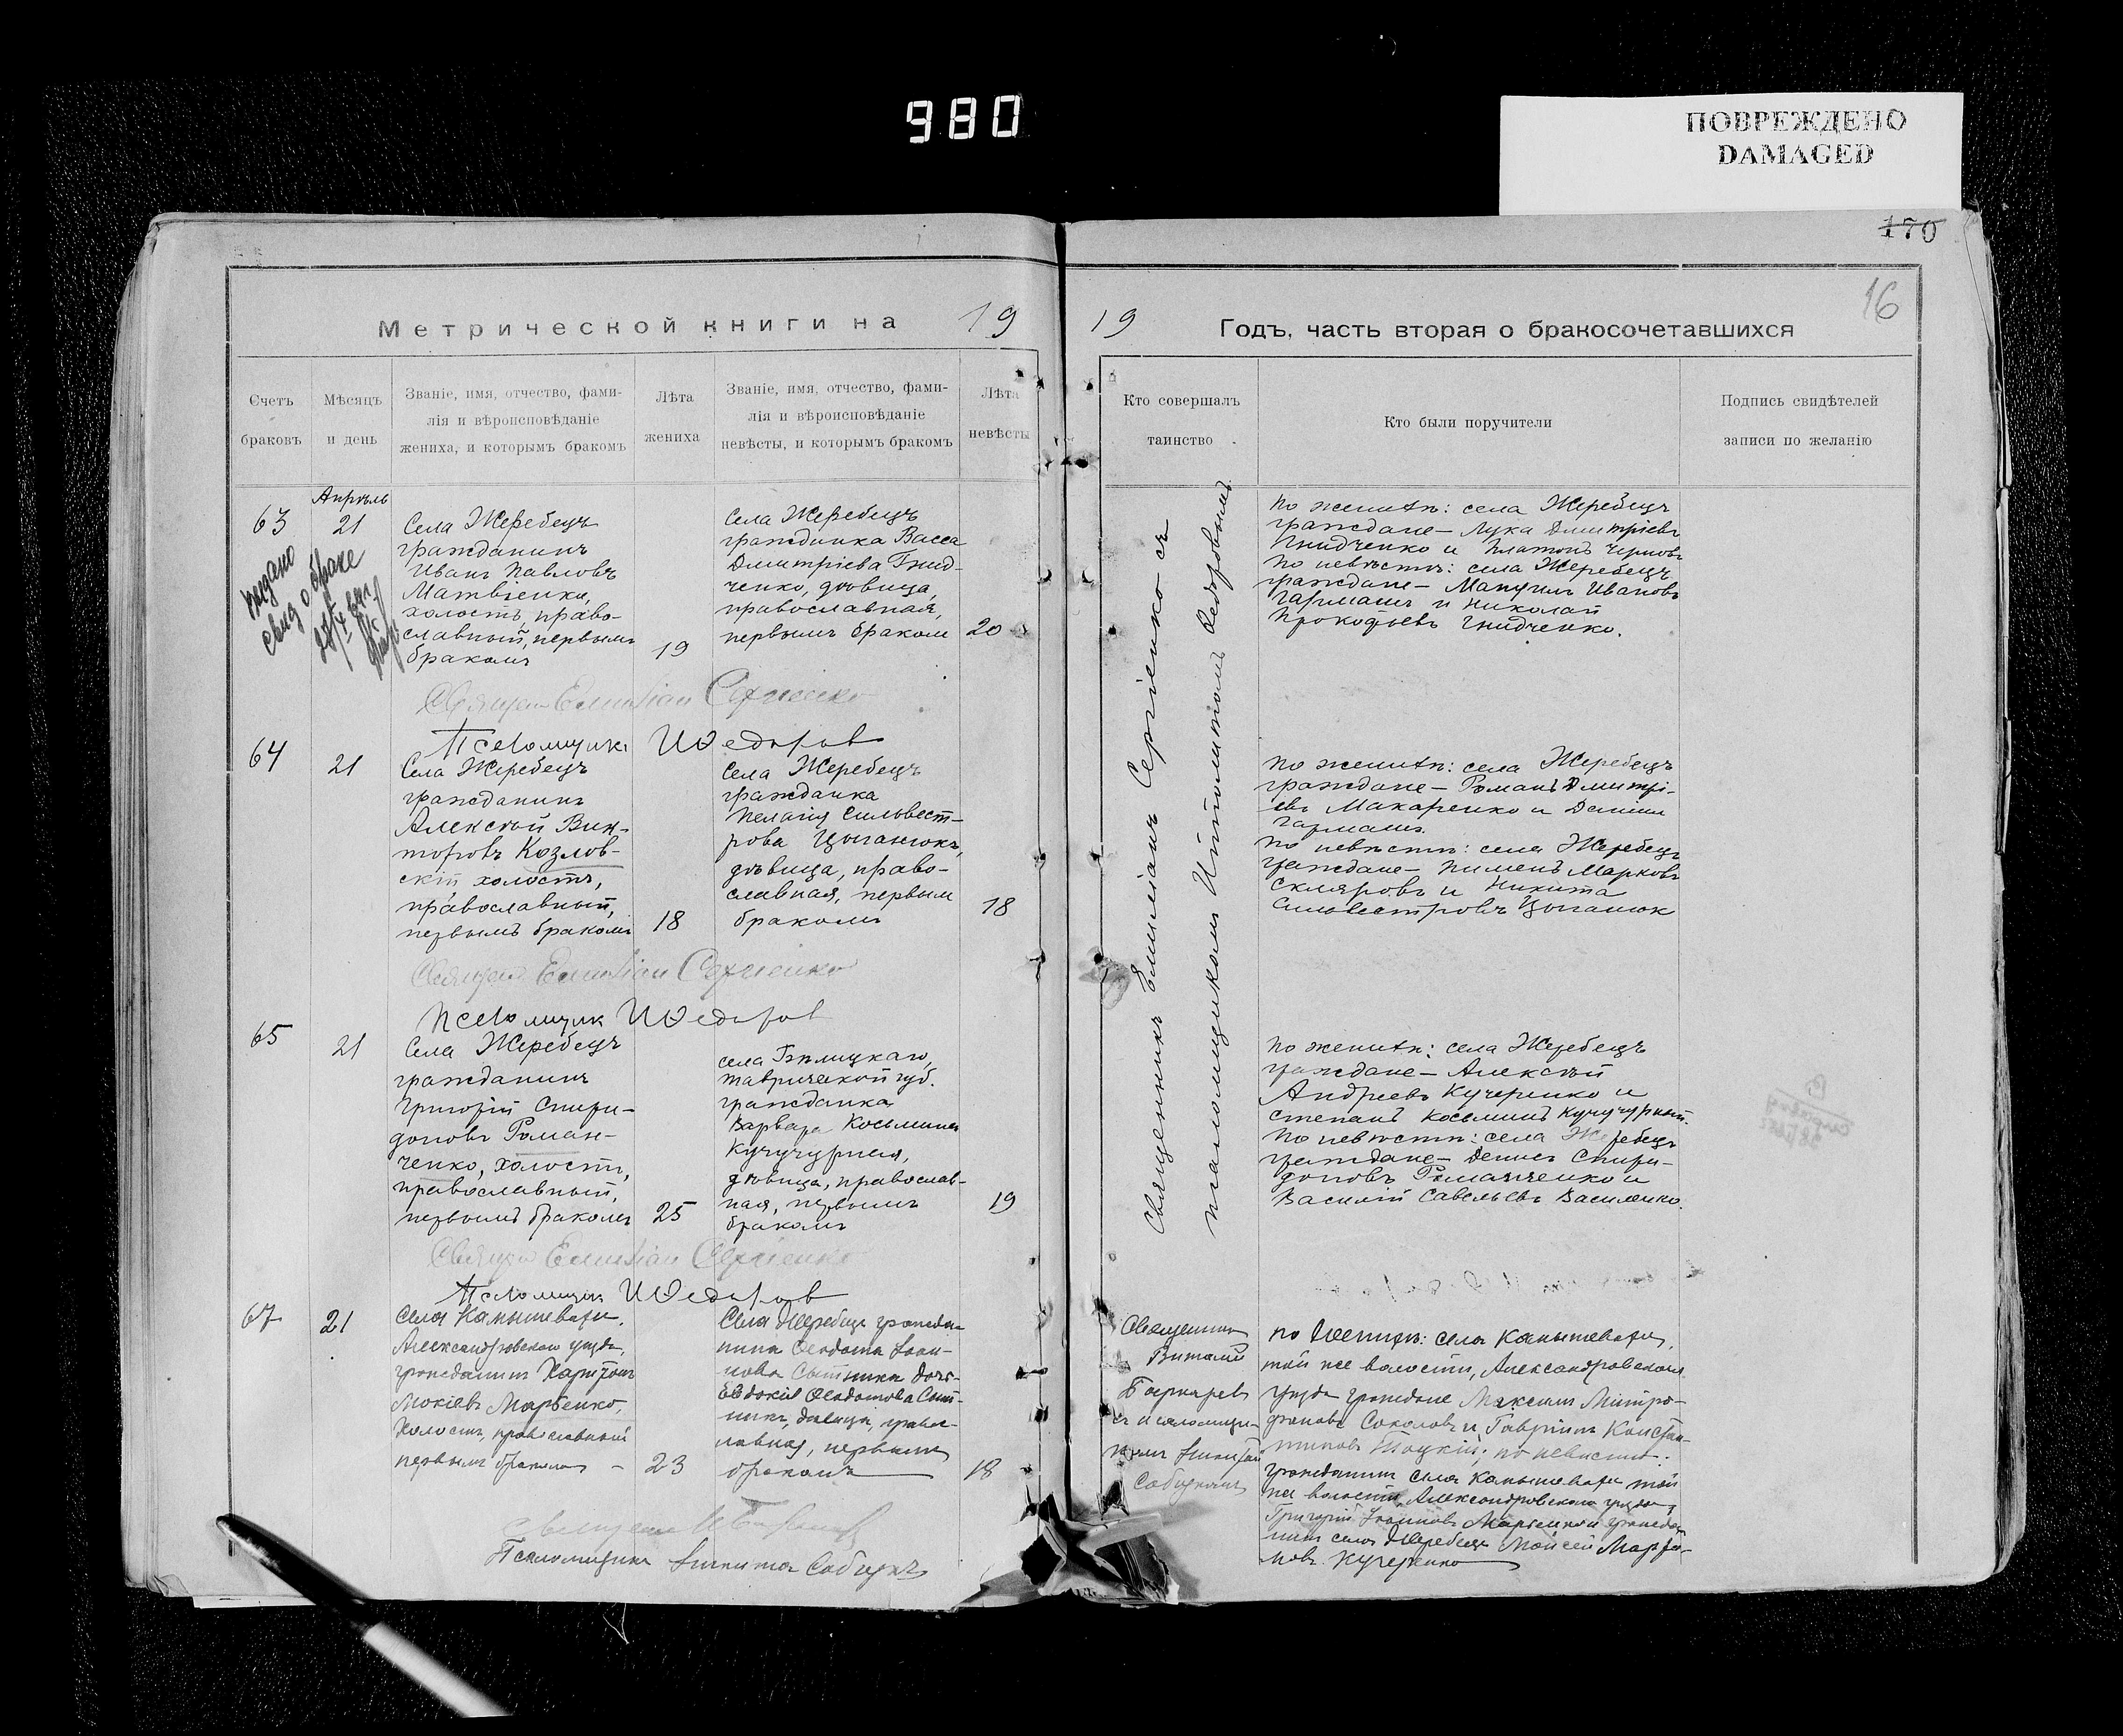 980
ПОВРЕЖДЕНО
DAMAGED
170
16
Метрической книги на 19
19 Годъ, часть вторая о бракосочетавшихся
Счетъ браковъ
Мѣсяцъ и день
Званіе, имя, отчество, фами-
лія и вѣроисповѣданіе
жениха, и которымъ бракомъ
Лѣта жениха
Званіе, имя, отчество, фами-
лія и вѣроисповѣданіе
невѣсты, и которымъ бракомъ
Лѣта невѣсты
Кто совершалъ таинство
Кто были поручители
Подпись свидѣтелей
записи по желанію
63
Апрѣль
21
Выдано
свид о браке
Села Жеребецъ
гражданинъ
Иванъ Павловъ
Матвіенко,
холостъ, право-
славный, первымъ
бракомъ
19
Села Жеребецъ
гражданка Васса
Дмитріева Гнид-
ченко, дѣвица,
православная,
первымъ бракомъ
20
Священникъ Емиліанъ Сергіенко съ
псаломщикомъ Ипполитомъ Ѳедоровымъ
по женихѣ: села Жеребецъ
граждане – Лука Дмитріевъ
Гнидченко и Платонъ Черновъ
по невѣстѣ: села Жеребецъ
граждане – Мануилъ Ивановъ
Гармашъ и Николай
Прокофьевъ Гнидченко.
Священ Емиліан Сергіенко
Псаломщикъ И Ѳедоров
64
21
Села Жеребецъ
гражданинъ
Алексѣй Вик-
торовъ Козлов-
скій, холостъ,
православный,
первымъ бракомъ
18
Села Жеребецъ
гражданка
Пелагія Сильвест-
рова Цыганюкъ,
дѣвица, право-
славная, первым
бракомъ
18
по женихѣ: села Жеребецъ
граждане – Романъ Дмитрі-
евъ Макаренко и Даніил
Гармашъ.
по невѣстѣ: села Жеребецъ
граждане – Пименъ Марковъ
Скляровъ и Никита
Сильвестровъ Цыганюк
Священ Емиліан Сергіенко
Псаломщик И Ѳедоров
65
21
Села Жеребецъ
гражданинъ
Григорій Спири-
доновъ Роман-
ченко, холостъ,
православный,
первымъ бракомъ
25
села Бѣлицкаго,
таврической губ.
гражданка
Варвара Косьмина
Кучугурная,
дѣвица, православ-
ная, первымъ
бракомъ
19
по женихѣ: села Жеребецъ
граждане – Алексѣй
Андреевъ Кучеренко и
Степанъ Косьминъ Кучугурный.
по невѣстѣ: села Жеребецъ
граждане – Денисъ Спири-
доновъ Романченко и
Василій Савельевъ Василенко.
Священ Емиліан Сергіенко
Псаломщик И Ѳедоров
67
21
Села Камышевахи,
Александровскаго уѣзда,
гражданинъ Харитонъ
Мокіевъ Марченко,
холостъ, православный
первымъ бракомъ –
23
Села Жеребца гражда-
нина Ѳеодота Іоан-
нова Сытника дочь
Евдокія Ѳеодотова Сыт-
никъ, дѣвица, право-
славная, первымъ
бракомъ
18
Священникъ
Виталій
съ псаломщи-
комъ Никитой
Собцкимъ
по женихѣ: села Камышевахи,
той же волости, Александровскаго
уѣзда граждане Максимъ Митро-
фановъ Соколовъ и Гавріилъ Констан-
тиновъ; по невѣстѣ:
гражданинъ села Камышевахи той
же волости, Александровскаго уѣзда,
Григорій Іоанновъ Марченко и гражда-
нинъ села Жеребецъ Моисей
Кучеренко
Псаломщикъ Никита